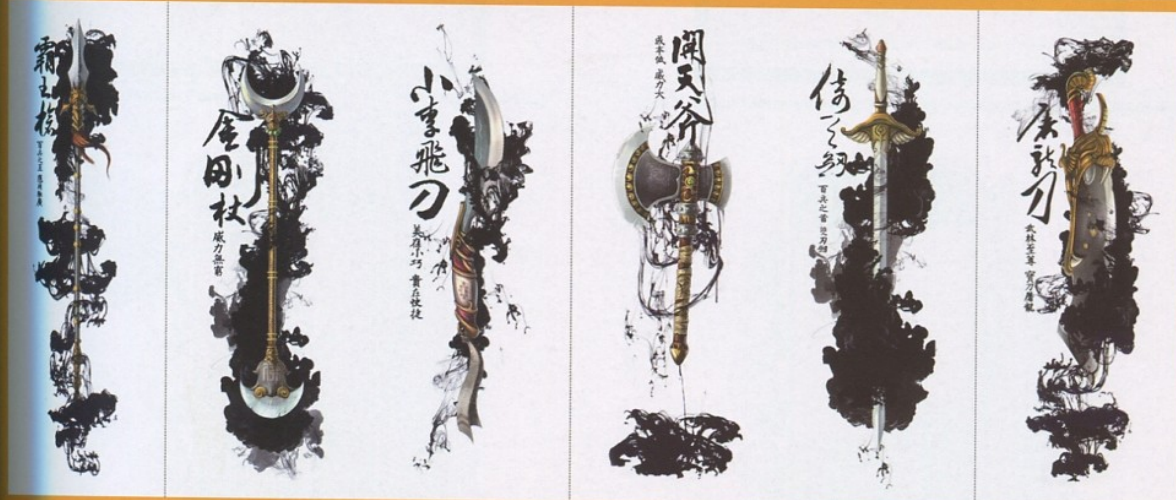 霸王槍
金剛杖
威力無窮
小李飛刀
英雄小巧 貴在快捷
開天斧
威力大
倚天劍
百兵之首
屠龍刀
武林至尊 寶刀屠龍